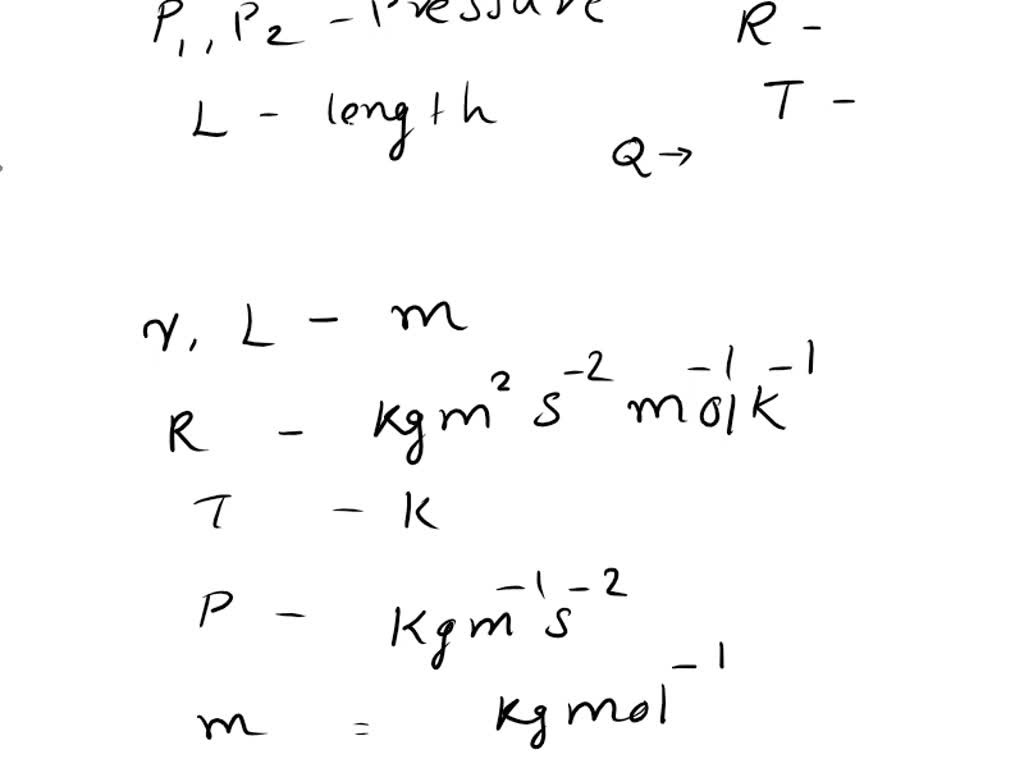 P₁, P₂ - Pressure R -
L - length T -
Q →
r, L - m
R - kg m² s⁻² mol⁻¹ K⁻¹
T - K
P - Kg m⁻¹ s⁻²
m = kg mol⁻¹